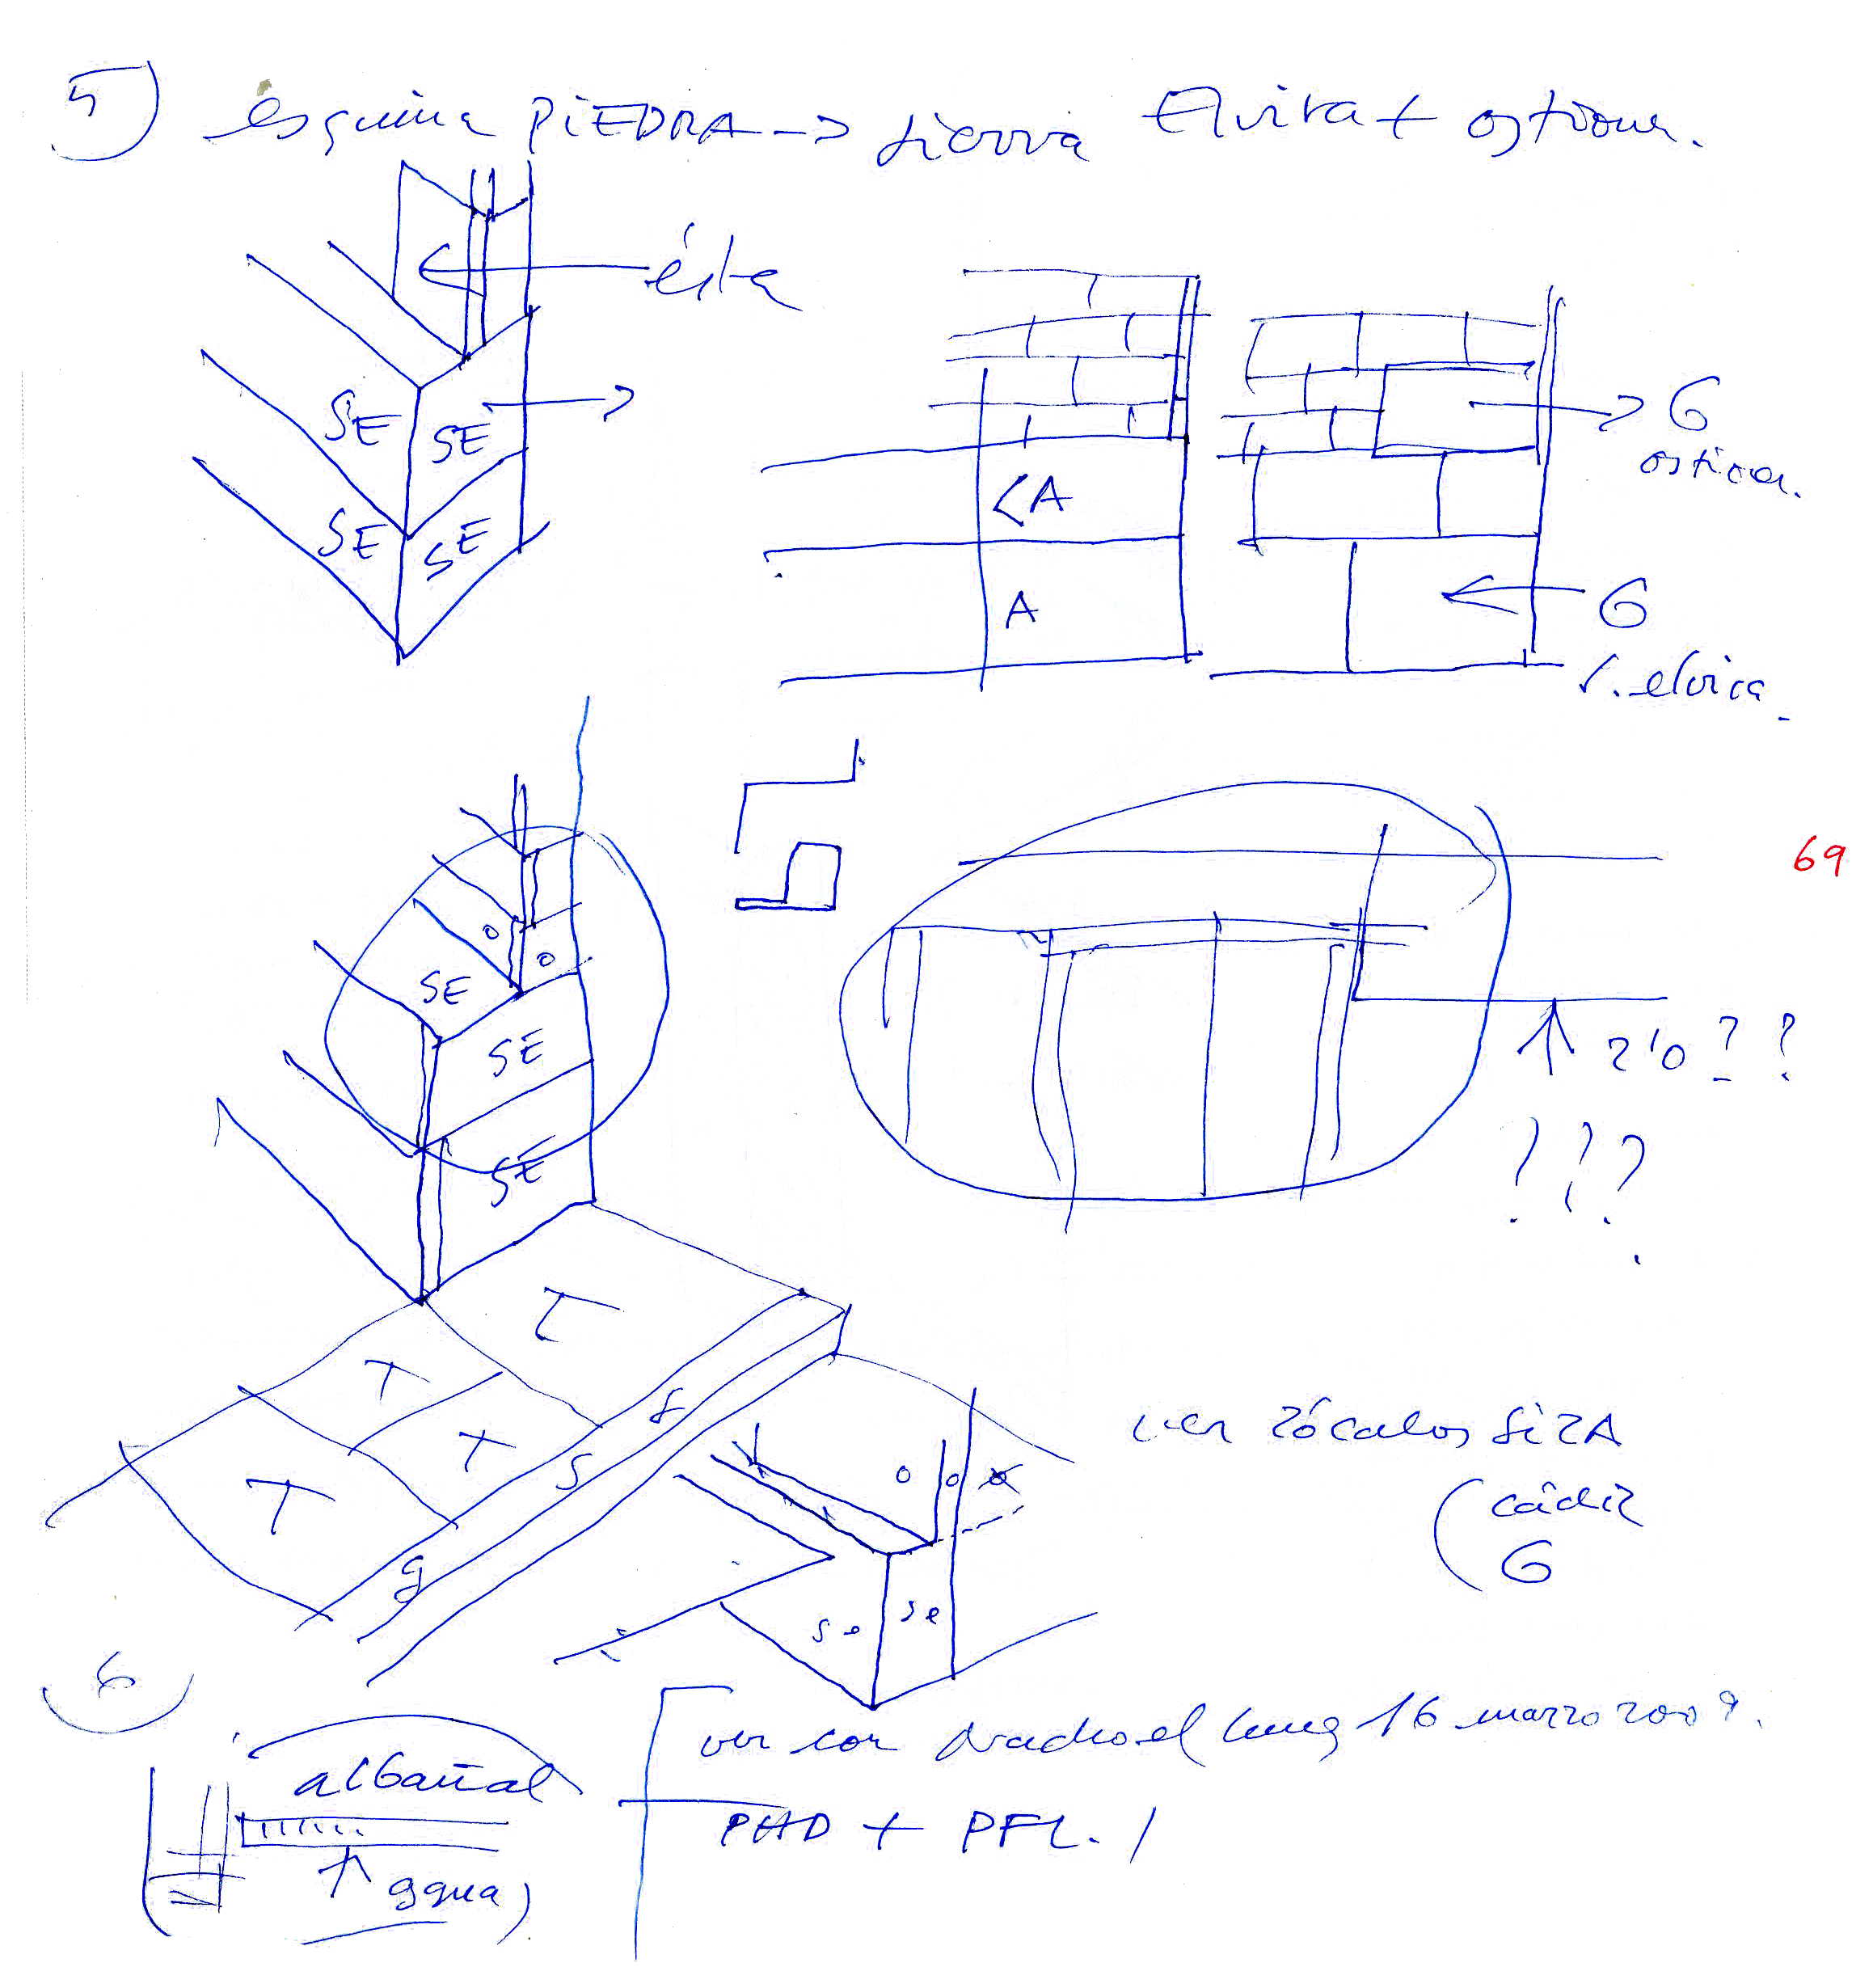 5) esquina PIEDRA -> sierra Elvira + ostion.
ésta
SE SE
SE SE
<A
A
6
ostion.
6
s. elvira.
69
o
o
SE
SE
SE
2'0 ??
???
T
T T
T
f
s
g
o o
se se
ver zócalos SiZA
(cádiz
6
6
albañal
agua)
ver con el lunes 16 marzo 2009.
PHD + PFL. /